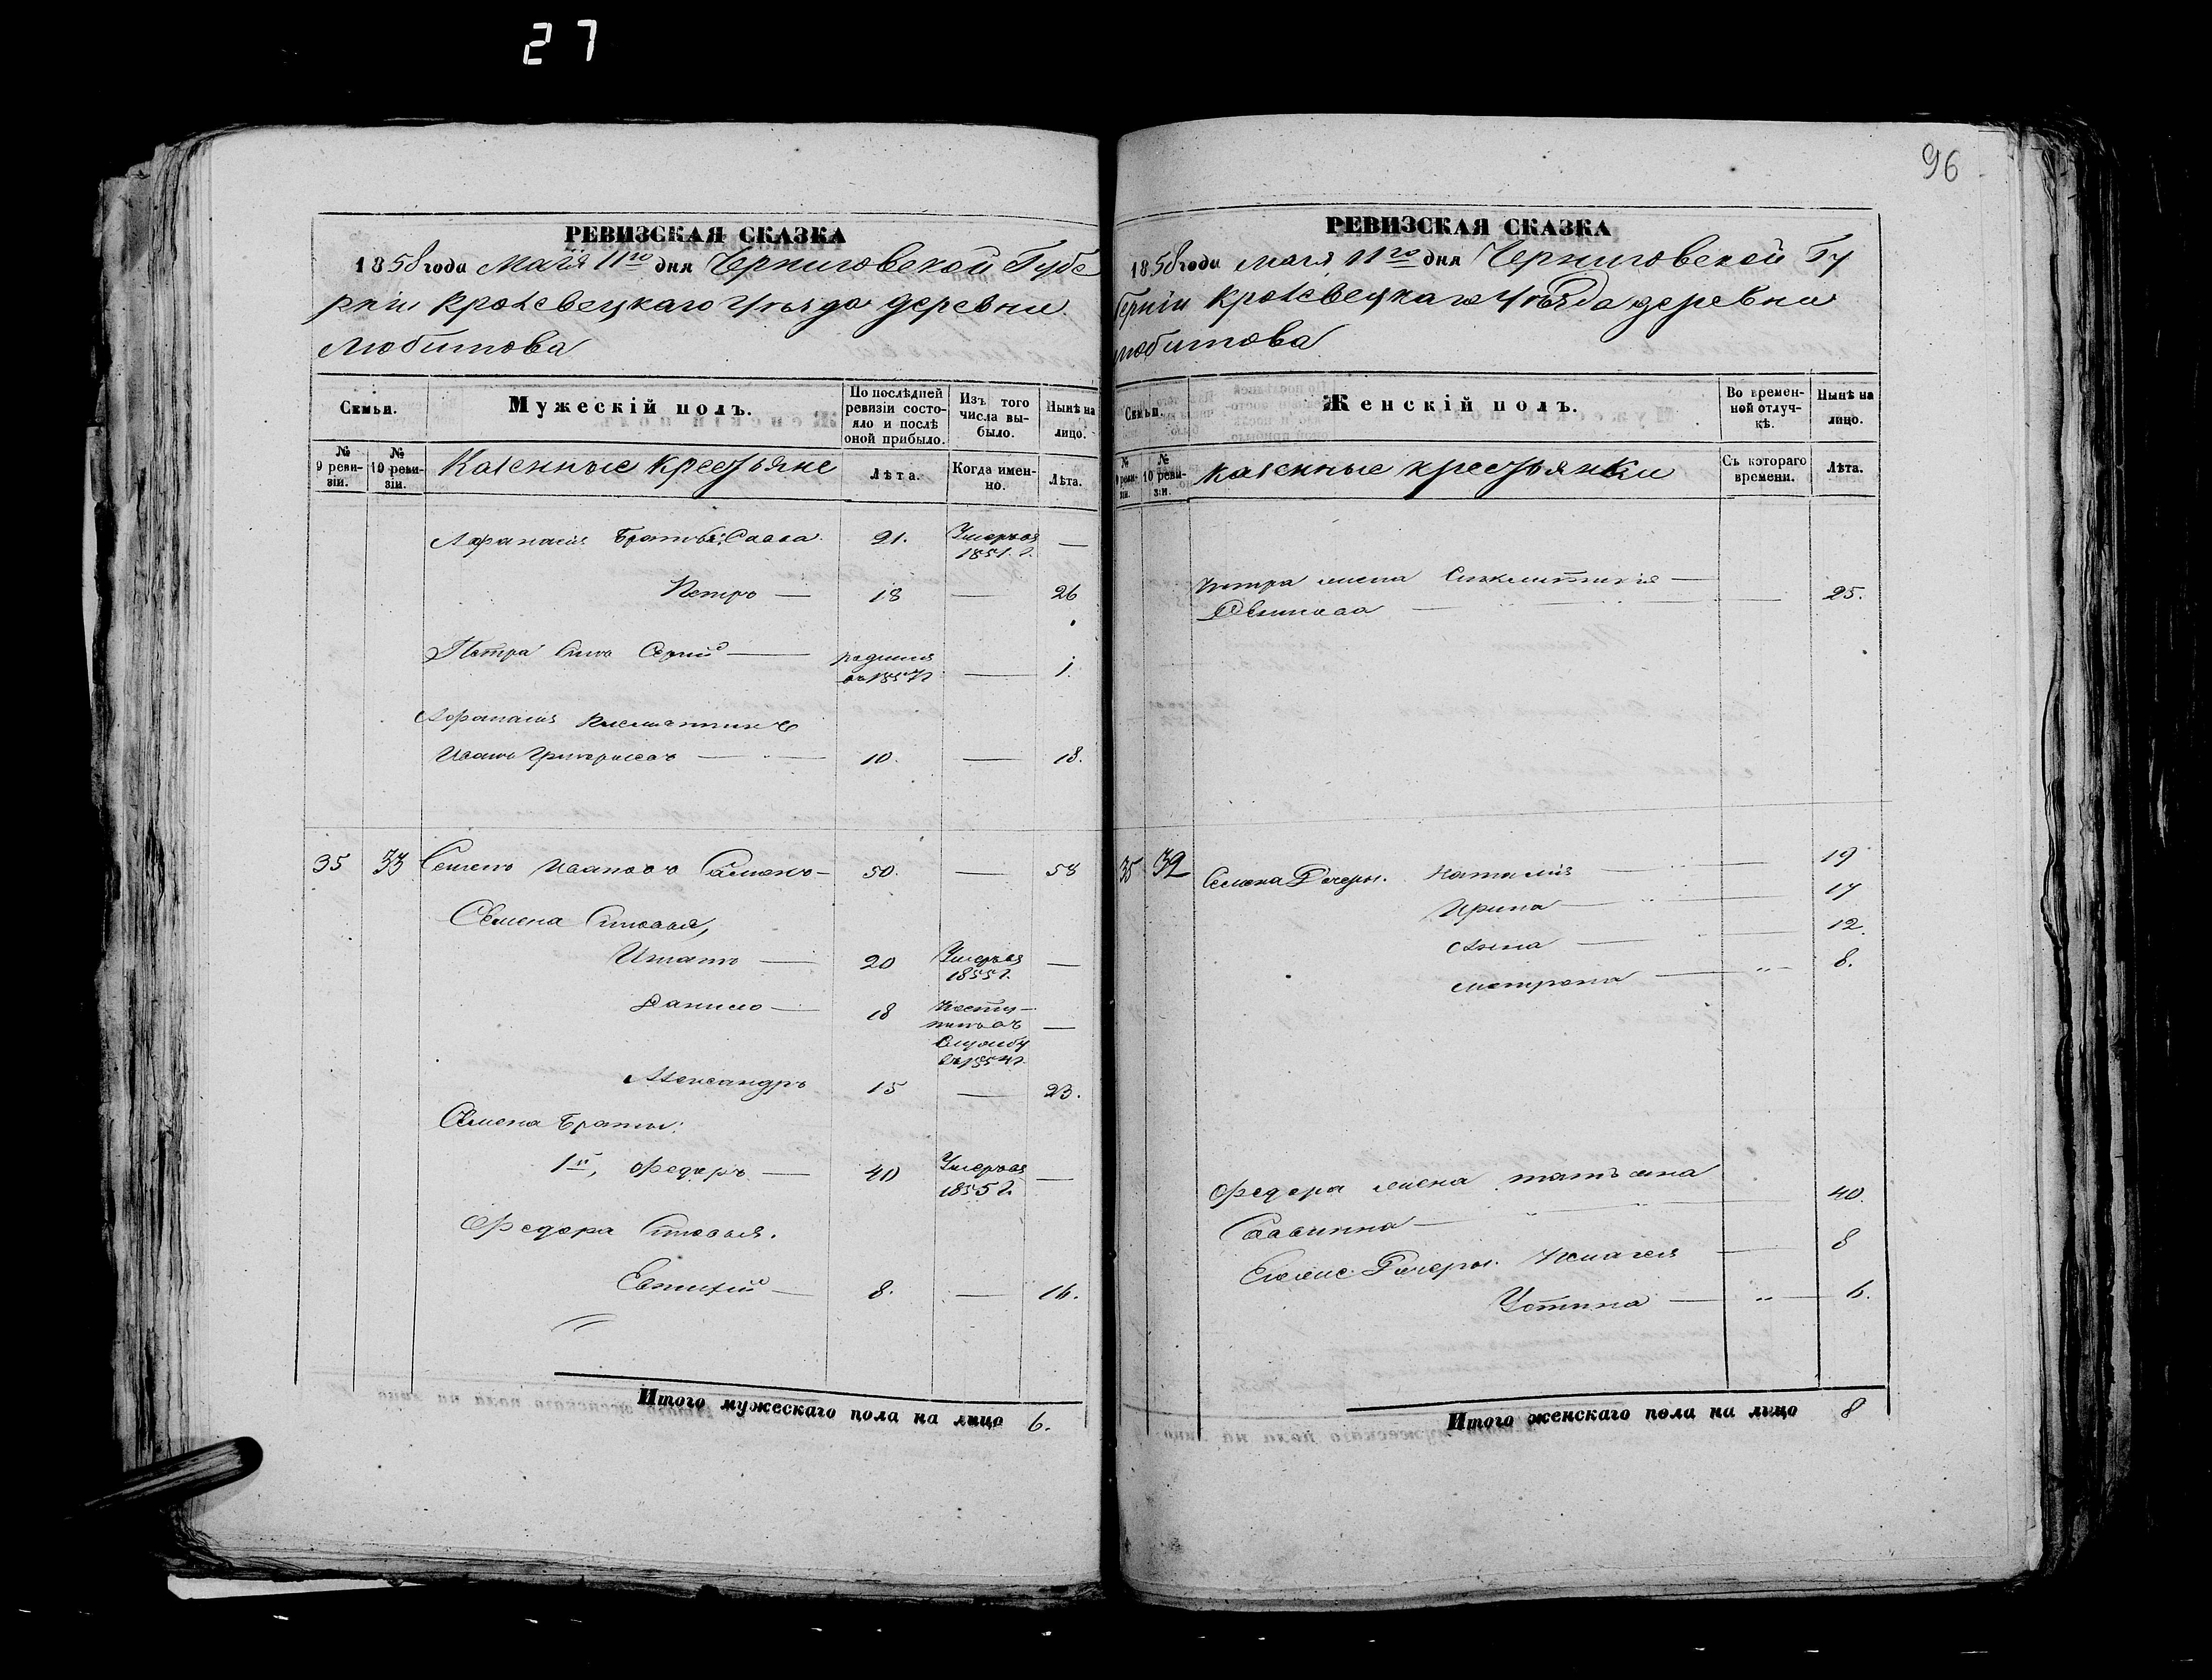 27
96
РЕВИЗСКАЯ СКАЗКА
1858 года Маія 11го дня Черниговской Губе
рніи Кролевецкаго уѣзда деревни
Любитова
Семьи.
Мужескій полъ.
По послѣдней ревизіи состояло и послѣ оной прибыло.
Изъ того числа выбыло.
Нынѣ на лицо.
№ 9 ревизіи.
№ 10 ревизіи.
Казенные крестьяне
Лѣта.
Когда именно.
Лѣта.
Афанасія Братья: Савва 21. Умеръ въ 1851. г. —
Петръ — 18 — 26
Петра Сынъ — родился въ 1857 г — 1.
Афанасія Племянникъ
Иванъ — 10. — 18.
35 33 Семенъ Ивановъ — 50. — 58
Семена Сыновья,
Игнатъ — 20 Умеръ въ 1855 г. —
Данило — 18
службу въ 1854 г. —
Александръ 15 — 23.
Семена Братья:
1й, Федоръ — 40 Умеръ въ 1855 г. —
Федора Сыновья.
Евтихій — 8. — 16.
Итого мужескаго пола на лицо 6.
РЕВИЗСКАЯ СКАЗКА
1858 года Маія 11го дня Черниговской Гу
берніи Кролевецкаго Уѣзда деревни
Любитова
Семьи.
Женскій полъ.
Во временной отлучкѣ.
Нынѣ на лицо.
№ 9 ревизіи.
№ 10 ревизіи.
Казенные крестьянки
Съ котораго времени.
Лѣта.
Петра жена —
— 25.
35 32 Семена Дочери. Наталія — 19
Ирина — 17
Анна — 12.
Матрона — „ — 8.
Федора жена Татьяна
Саввична — 40.
Дочери. — 8
Устина — „ — 6.
Итого женскаго пола на лицо 8